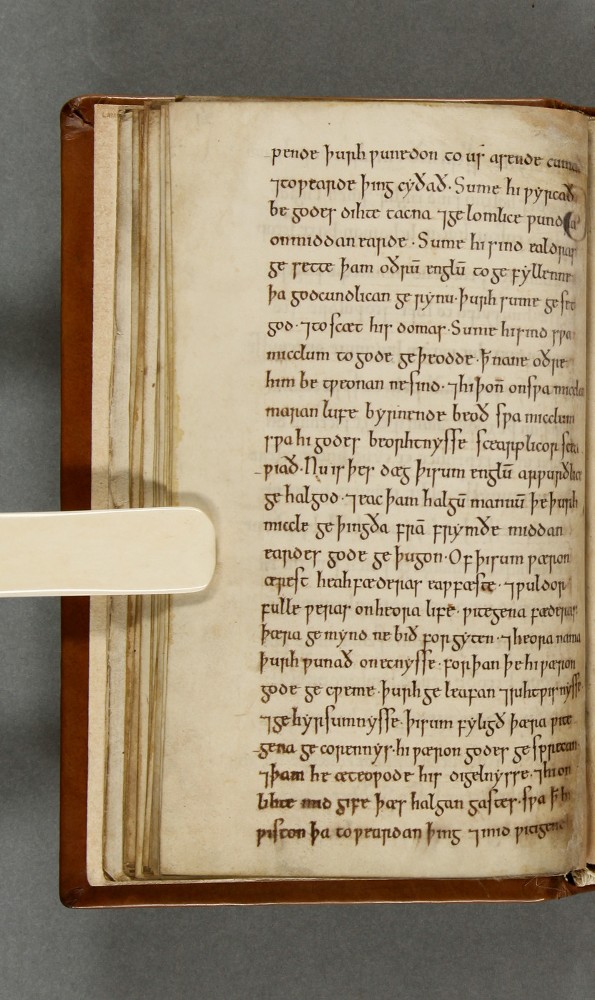 ƿende þurh ƿunedon to us asende cuma
⁊toƿearde þing cyðað. Sume hi ƿyrcað
be godes dihte tacna ⁊ge lomlice ƿund
onmiddan earde. Sume hi sind ealdras
ge sette þam oðrū englū to ge fyllenne
þa godcundlican ge rynu. þurh sume ge set
god. ⁊to scæt his domas. Sume hi sind sƿa
micclum to gode geþeodde. ꝥ nane oðre
him be tƿeonan ne sind. ⁊hi þon̄ onsƿa miccla
maran lufe byrnende beoð sƿa micclum
sƿa hi godes beorhtnysse scearplicor scea
ƿiað. Nu is þes dæg þisum englū arƿurðlice
ge halgod. ⁊eac þam halgū mannū þe þurh
miccle ge þingða frā frymðe middan
eardes gode ge þugon. Of þisum ƿæron
ærest heahfæderas eaƿfæste. ⁊ƿuldor
fulle ƿeras onheora life. ƿitegena fæderas
þæra ge mynd ne bið forgyten. ⁊heora nama
þurh ƿunað on ecnysse. for þan þe hi ƿæron
gode ge cƿeme. þurh ge leafan ⁊rihtƿisnysse
⁊gehyrsumnysse. þisum fyligð þæra ƿite
gena ge corennys. hi ƿæron godes ge sprecan
⁊þam he æteoƿode his digelnysse. ⁊hi on
lihte mid gife þæs halgan gastes. sƿa ꝥ hi
ƿiston þa to ƿeardan þing ⁊mid ƿitigend